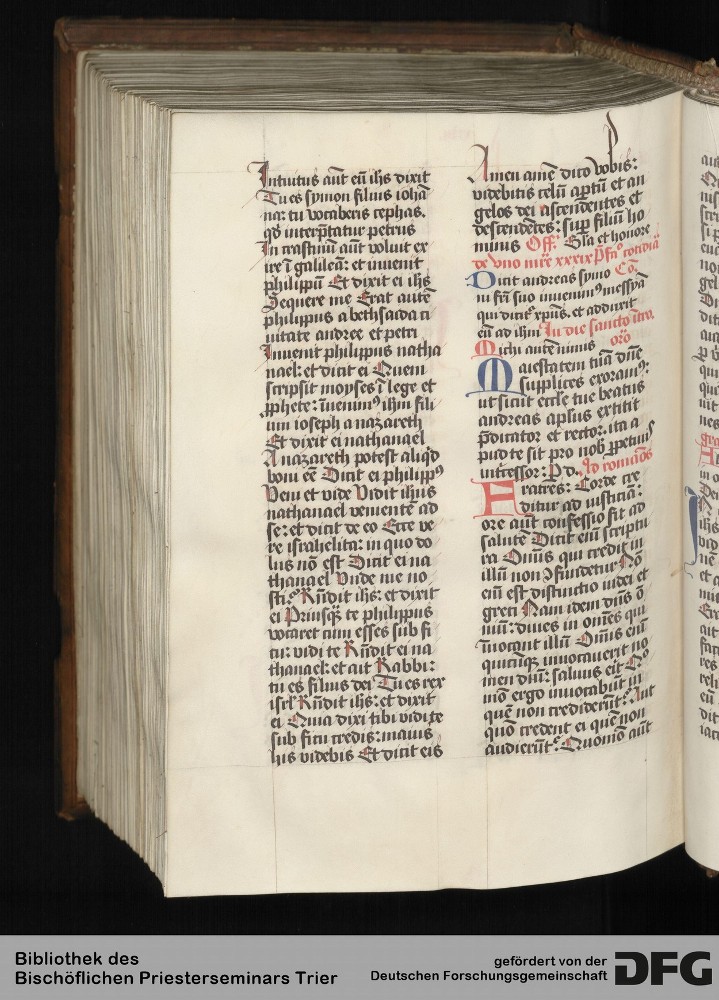 Intuitus aūt eū ihs dixit
Tu es symon filius iohā
na: tu vocaberis cephas.
qd interp̄tatur petrus
In crastinū aūt voluit ex
ire ī galileā: et inuenit
philippū Et dixit ei ihs
Sequere me Erat autē
philippus a bethsaida ci
uitate andree et petri
Inuenit philippus natha
nael: et dicit ei Quem
scripsit moyses ī lege et
ꝓphete: īuenimꝰ ihm fili
um ioseph a nazareth
Et dixit ei nathanael
A nazareth potest aliqd
boni eē Dicit ei philippꝰ
Veni et vide Vidit ihus
nathanael venientē ad
se: et dicit de eo Ecce ve
re israhelita: in quo do
lus nō est Dicit ei na
thanael Vnde me no
sti? Rn̄dit ihs: et dixit
ei Priusq̄ te philippus
vocaret cum esses sub fi
cu: vidi te Rn̄dit ei na
thanael: et ait Rabbi:
tu es filius dei Tu es rex
isrl Rn̄dit ihs: et dixit
ei Quia dixi tibi vidi te
sub ficu credis: maius
his videbis Et dicit eis
Amen amē dico vobis:
videbitis celū aptū et an
gelos dei ascendentes et
descendētes: suꝑ filiū ho
minis Off. Gl̄a et honore
de vno mr̄e xxxix P̄fa° cotidiā
Dicit andreas symo Cō.
ni fr̄i suo inuenimꝰ messyā
qui dicit xp̄us. et adduxit
eū ad ihm In die sancto
Michi autē nimis oro
Maiestatem tuā dn̄e
supplices exoramꝰ:
ut sicut eccl̄e tue beatus
andreas apl̄us extitit
p̄dicator et rector. ita a
pud te sit pro nob ꝑpetuus
intcessor: P d. Ad romanos
Fratres: Corde cre
ditur ad iusticiā:
ore aūt confessio fit ad
salutē Dicit eni scriptu
ra Omnis qui credit in
illū non ꝯfundetur Nō
eni est distinctio iudei et
greci Nam idem dn̄s ō
niū: diues in omēs qui
īuocant illū Omnis eni
quicūqꝫ inuocauerit no
men dn̄i: saluus erit Quō
ergo inuocabūt in
quē non crediderūt? Aut
quō credent ei quē non
audierūt? Quomō aūt
Bibliothek des
Bischöflichen Priesterseminars Trier
gefördert von der
Deutschen Forschungsgemeinschaft
DFG